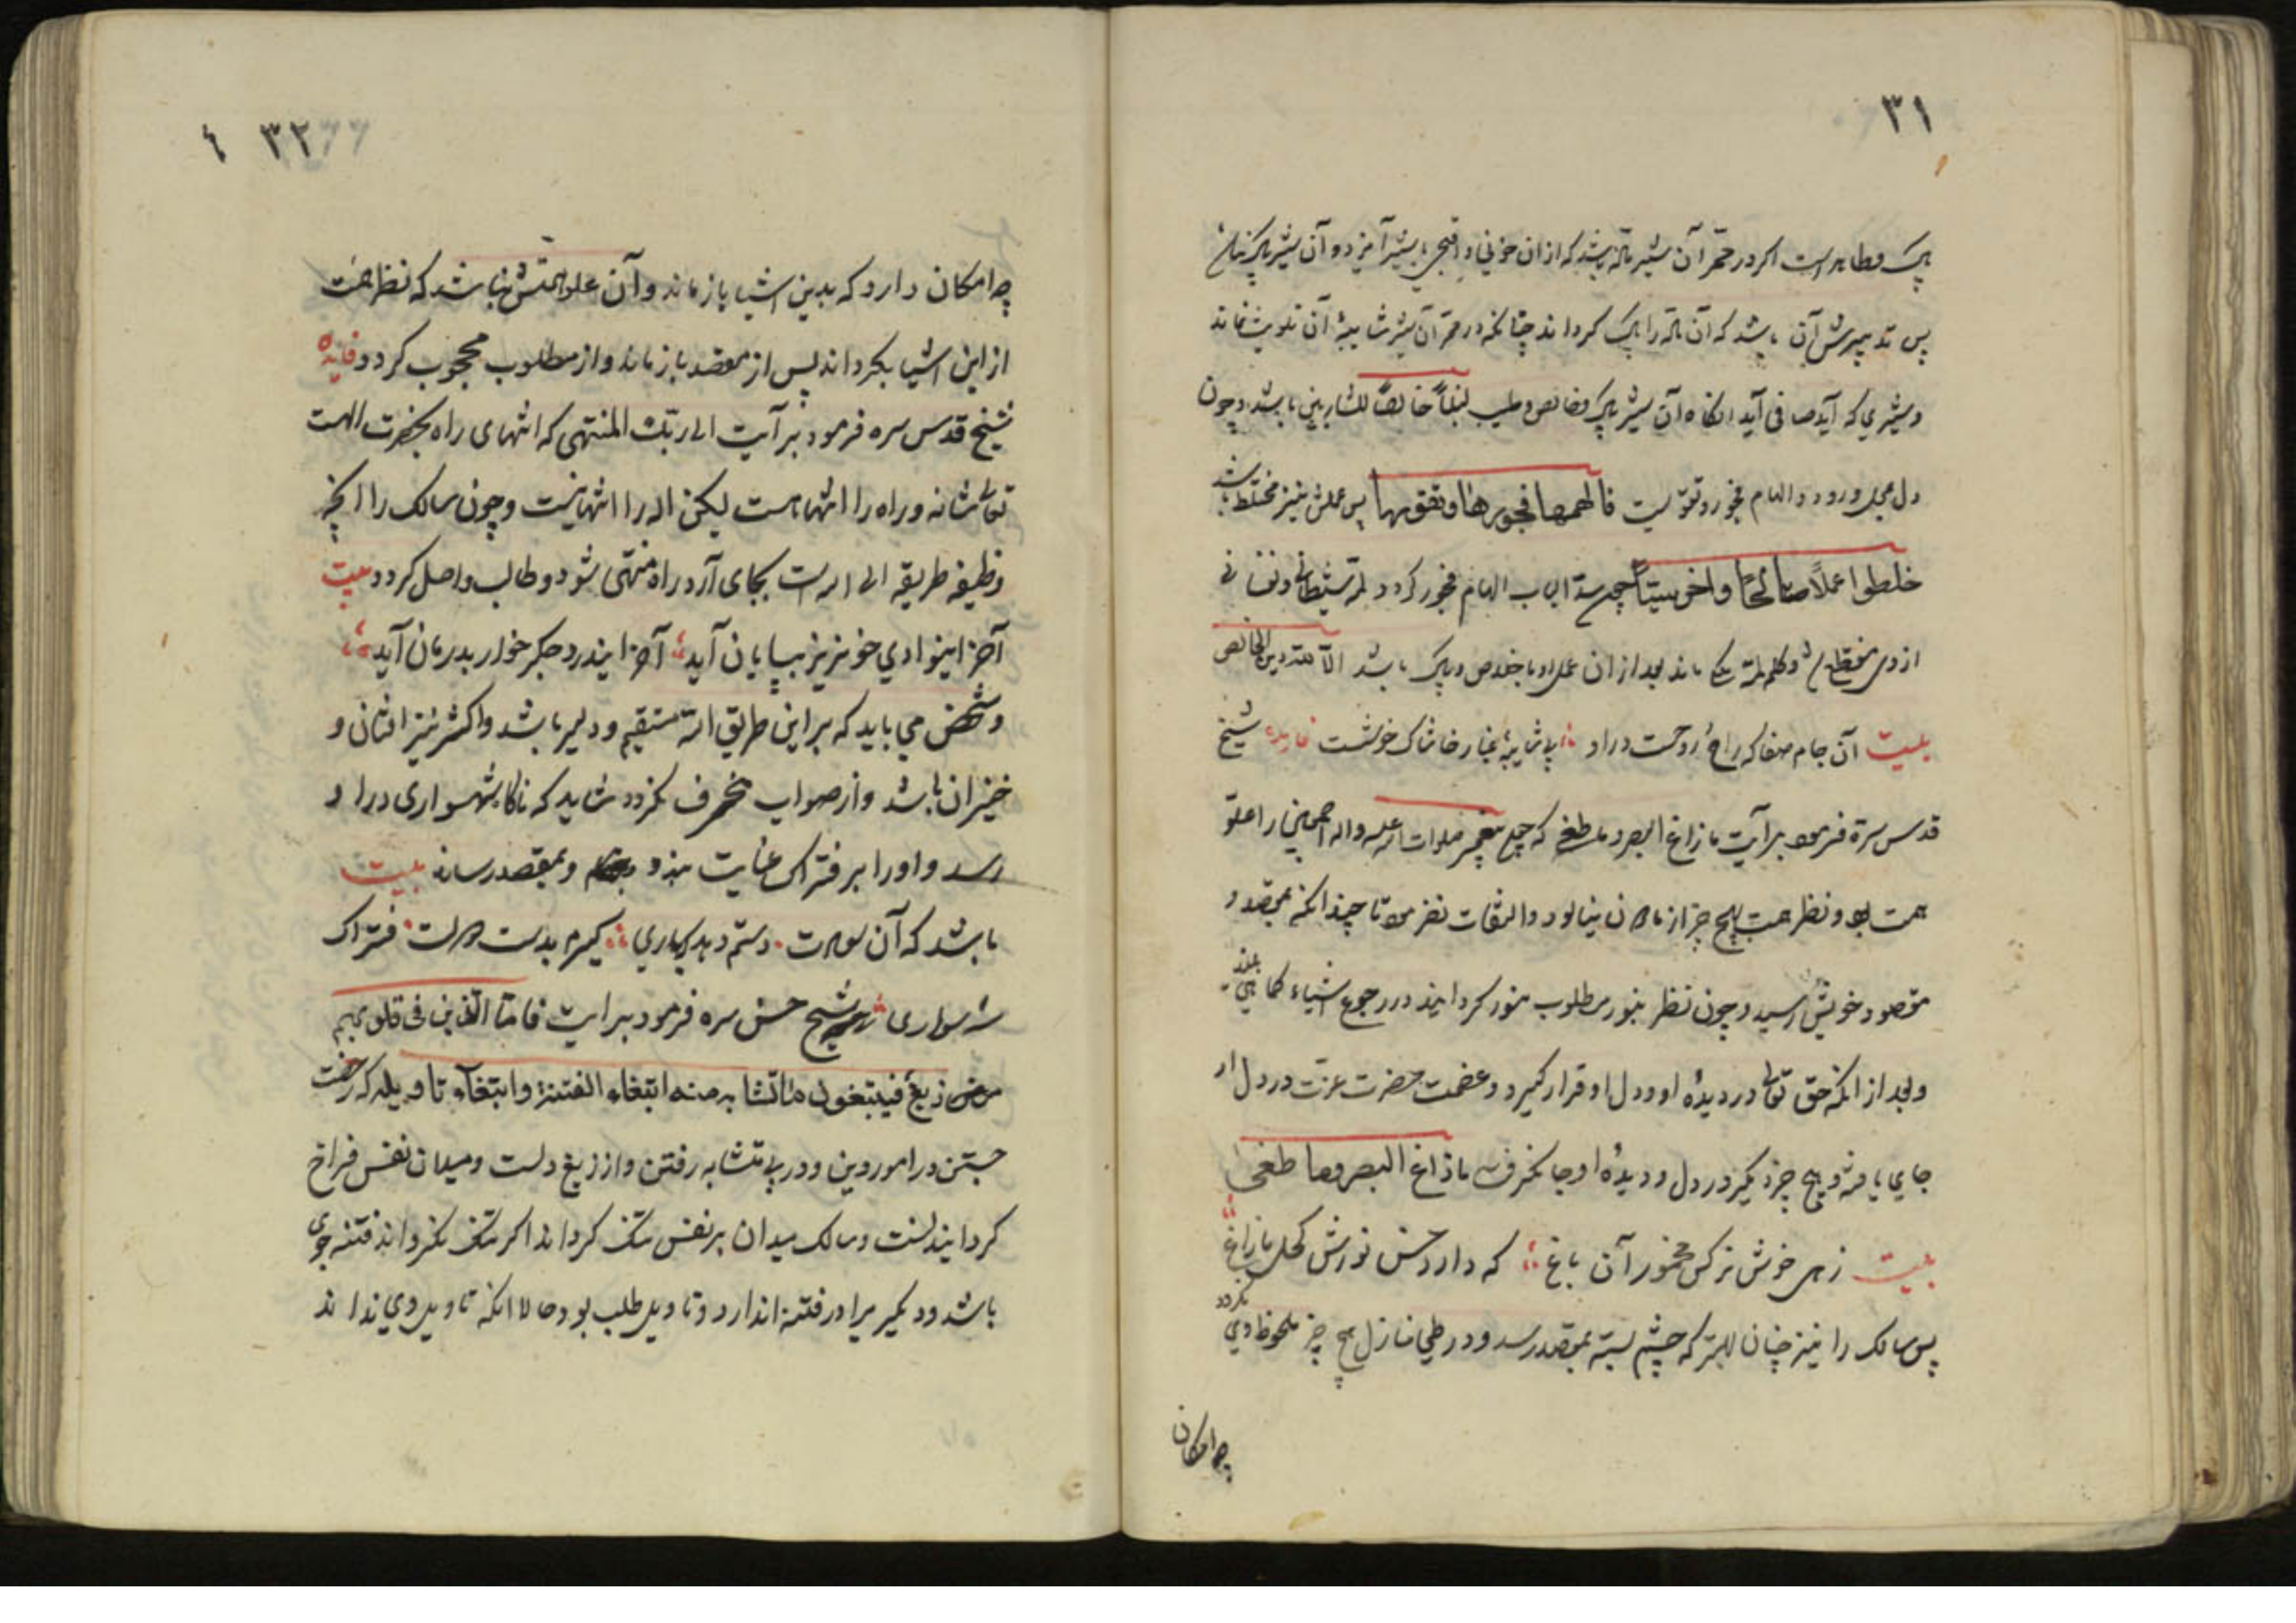 ۳۱
پاک و طاهر است اگر در ممر آن شیر باشد که از ان خونی و به شیر آمیزد و آن شیر پاک
پس تدبیرش آن باشد که آن را پاک کرداند چنانکه در ممر آن شیر شایبهٔ آن تلویث نماند
و شیری که آید صافی آید انکاه آن شیر پاک و خالص و طیب لبناً خالصاً للشاربین باشد و چون
دل محل ورود الهام فجور و تقویست فالهمها فجورها وتقویها پس عملش نیز مختلط باشد
خلطوا عملاً صالحاً واخر سیئاً چون سد باب الهام فجور کردد لمهٔ شیطانی و نفسانی
از وی منقطع شود لمهٔ ملکی ماند بعد از ان عمل او با خلاص و پاک باشد الا لله الدین الخالص
بیت آن جام صفا که راح روحست دراو بی شایبهٔ غبار خاشاک خوشست فایده شیخ
قدس سره فرمود بر آیت مازاغ البصر وما طغی که چون پیغمبر صلوات الله علیه واله اجمعین را علو
همت بود نظر همت بهیچ چیز از ماکان نیالود و التفات نفرمود تا چندانکه بمقصد و
مقصود خویش رسید و چون نظر بنور مطلوب منور کردانید در رجوع اشیاء کما هی بدید
و بعد از انکه حق تعالی در دیدهٔ او و دل او قرار کیرد و عظمت حضرت عزت در دل او
جای یافته و هیچ چیز دیکر در دل و دیدهٔ او جا نکرفت مازاغ البصر وما طغی
بیت زهی خوش نرکس مخمور آن باغ که دارد حسن نورش کحل مازاغ
پس سالک را نیز چنان بهتر که چشم بسته بمقصد رسد و در طی منازل هیچ چیز ملحوظ وی نکردد
چه امکان
۳۲
چه امکان دارد که بدین اشیا باز ماند و آن علو همتش نباشد که نظر همت
از این اشیا بکرداند پس از مقصد باز ماند و از مطلوب محجوب کردد فایده
شیخ قدس سره فرمود بر آیت الی ربک المنتهی که انتهای راه بحضرت الهست
تعالی شانه و راه را انتهاست لیکن اله را انتها نیست و چون سالک را انچه
وظیفهٔ طریقه الی الله است بجای آرد راه منتهی شود و طالب واصل کردد بیت
آخر اینوادی خونریز بپایان آید آخر ایندرد جکرخوار بدرمان آید
و شخص می باید که بر این طریق الله مستقیم و دلیر باشد و اکثر نیز افتان و
خیزان باشد و از صواب منحرف نکردد شاید که ناکاه شهسواری دراو
رسد و اورا بر فتراک عنایت بندد و بمقصد رساند بیت
باشد که آن سعادت دستم دهد بیاری کیرم بدست دولت فتراک
شه سواری شیخ حسن سره فرمود بر ایت فاما الذین فی قلوبهم
زیغ فیتبعون ما تشابه منه ابتغاء الفتنة وابتغآء تاویله که رخصت
جستن در امور دین و در پی متشابه رفتن و از زیغ دلست و میدان نفس فراخ
کردانیدنست و سالک میدان بر نفس تنک کرداند اکر تنک نکرداند فتنه جوی
باشد و دیکر یرا در فتنه اندازد و تاویل طلب بود و حالا انکه تاویل وی نداند